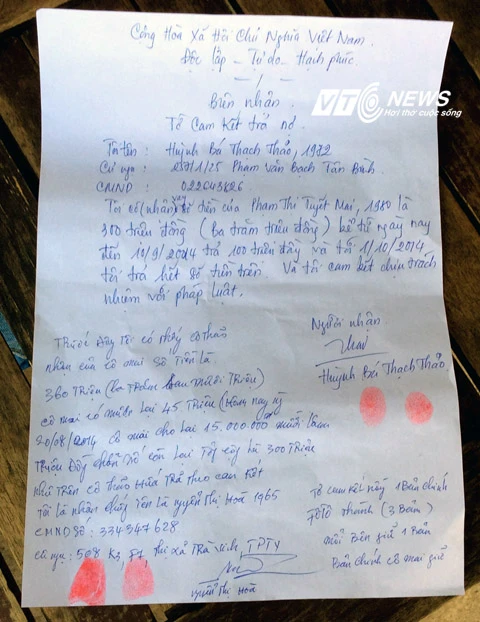 Cộng Hòa Xã Hội Chủ Nghĩa Việt Nam.
Độc lập - Tự do - Hạnh phúc.
-/-
VTC NEWS
Hơi thở cuộc sống
Biên nhận.
Tờ Cam Kết trả nợ.
Tôi tên: Huỳnh Bá Thạch Thảo, 1972
Cư ngụ: 257/1/25 Phạm Văn Bạch Tân Bình
CMND: 022643826
Tôi có (nhận) vay số tiền của Phạm Thị Tuyết Mai, 1980 là
300 triệu đồng (ba trăm triệu đồng) kể từ ngày nay
đến 10/9/2014 trả 100 triệu đồng và tới 1/10/2014
tôi trả hết số tiền trên. Và tôi cam kết chịu trách
nhiệm với pháp luật.
Người nhận
Thảo
Huỳnh Bá Thạch Thảo
Trước đây tôi có thấy cô thảo
nhận của cô mai số tiền là
360 Triệu (ba Trăm Sáu mươi Triệu)
cô mai có nhận lại 45 Triệu (Hôm nay ng
20/08/2014 cô mai cho lại 15.000.000 mười lăm
Triệu Đồng
còn lại
300 Triệu
như Trên cô thảo Hứa Trả theo cam Kết
Tôi là nhân chứng Tên là nguyễn Thị Hoà 1965
CMND Số: 334347628
cư ngụ: 508 K3, F7, thị xã Trà Vinh, TPTV
nguyễn Thị Hoà
Tờ cam kết này 1 Bản chính
FOTO thành (3 Bản)
mỗi Bên giữ 1 Bản
Bản chính cô mai giữ